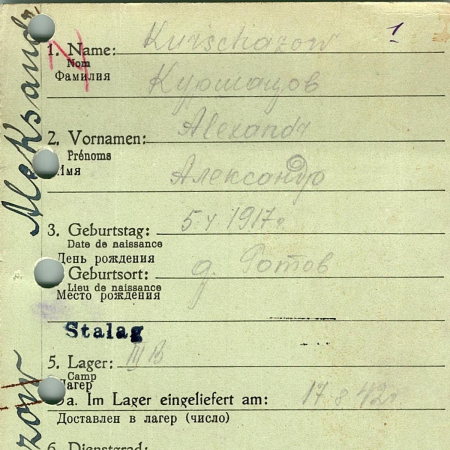 1. Name: Kurschazow 1
Nom
Фамилия Куршацов
2. Vornamen: Alexandr
Prénoms
Имя Александр
3. Geburtstag: 5 V 1917 г
Date de naissance
День рождения
Geburtsort: д. Ротов
Lieu de naissance
Место рождения
Stalag
5. Lager: III B
Camp
Лагерь
5a. Im Lager eingeliefert am: 17 8 42 г
Доставлен в лагерь (число)
6. Dienstgrad:
Aleksand
zow